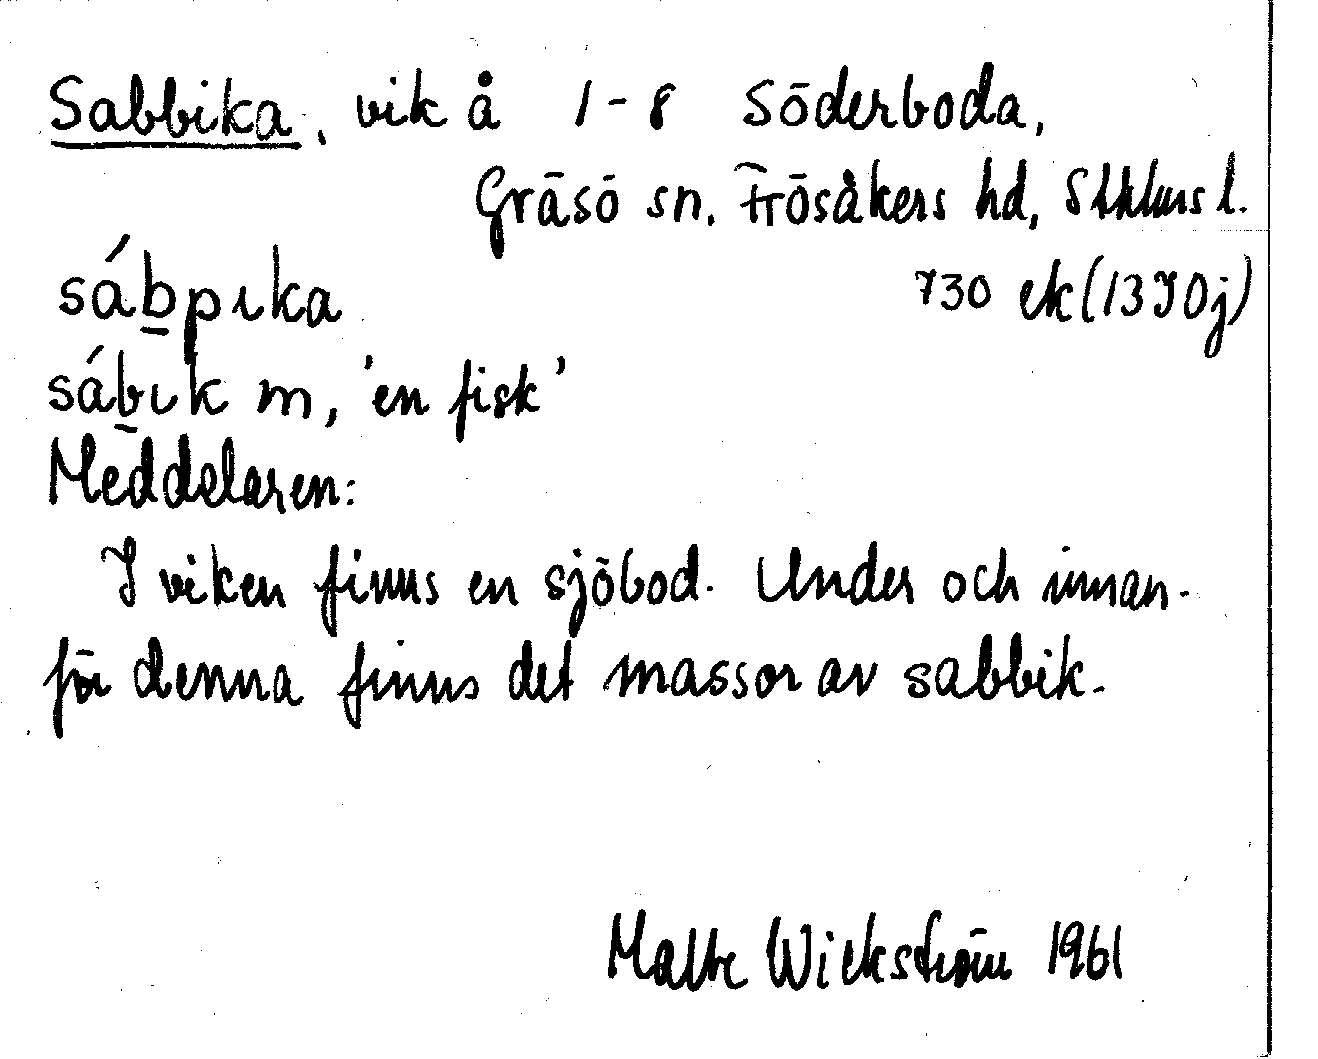 Sabbika, vik å 1-8 Söderboda,
Gräsö sn. Frösåkers hd, Sthlms l.
sábpıka 730 ek (13I0j)
sábık m, 'en fisk'
Meddelaren:
I viken finns en sjöbod. Under och innan-
för denna finns det massor av sabbik.
Malte Wickström 1961